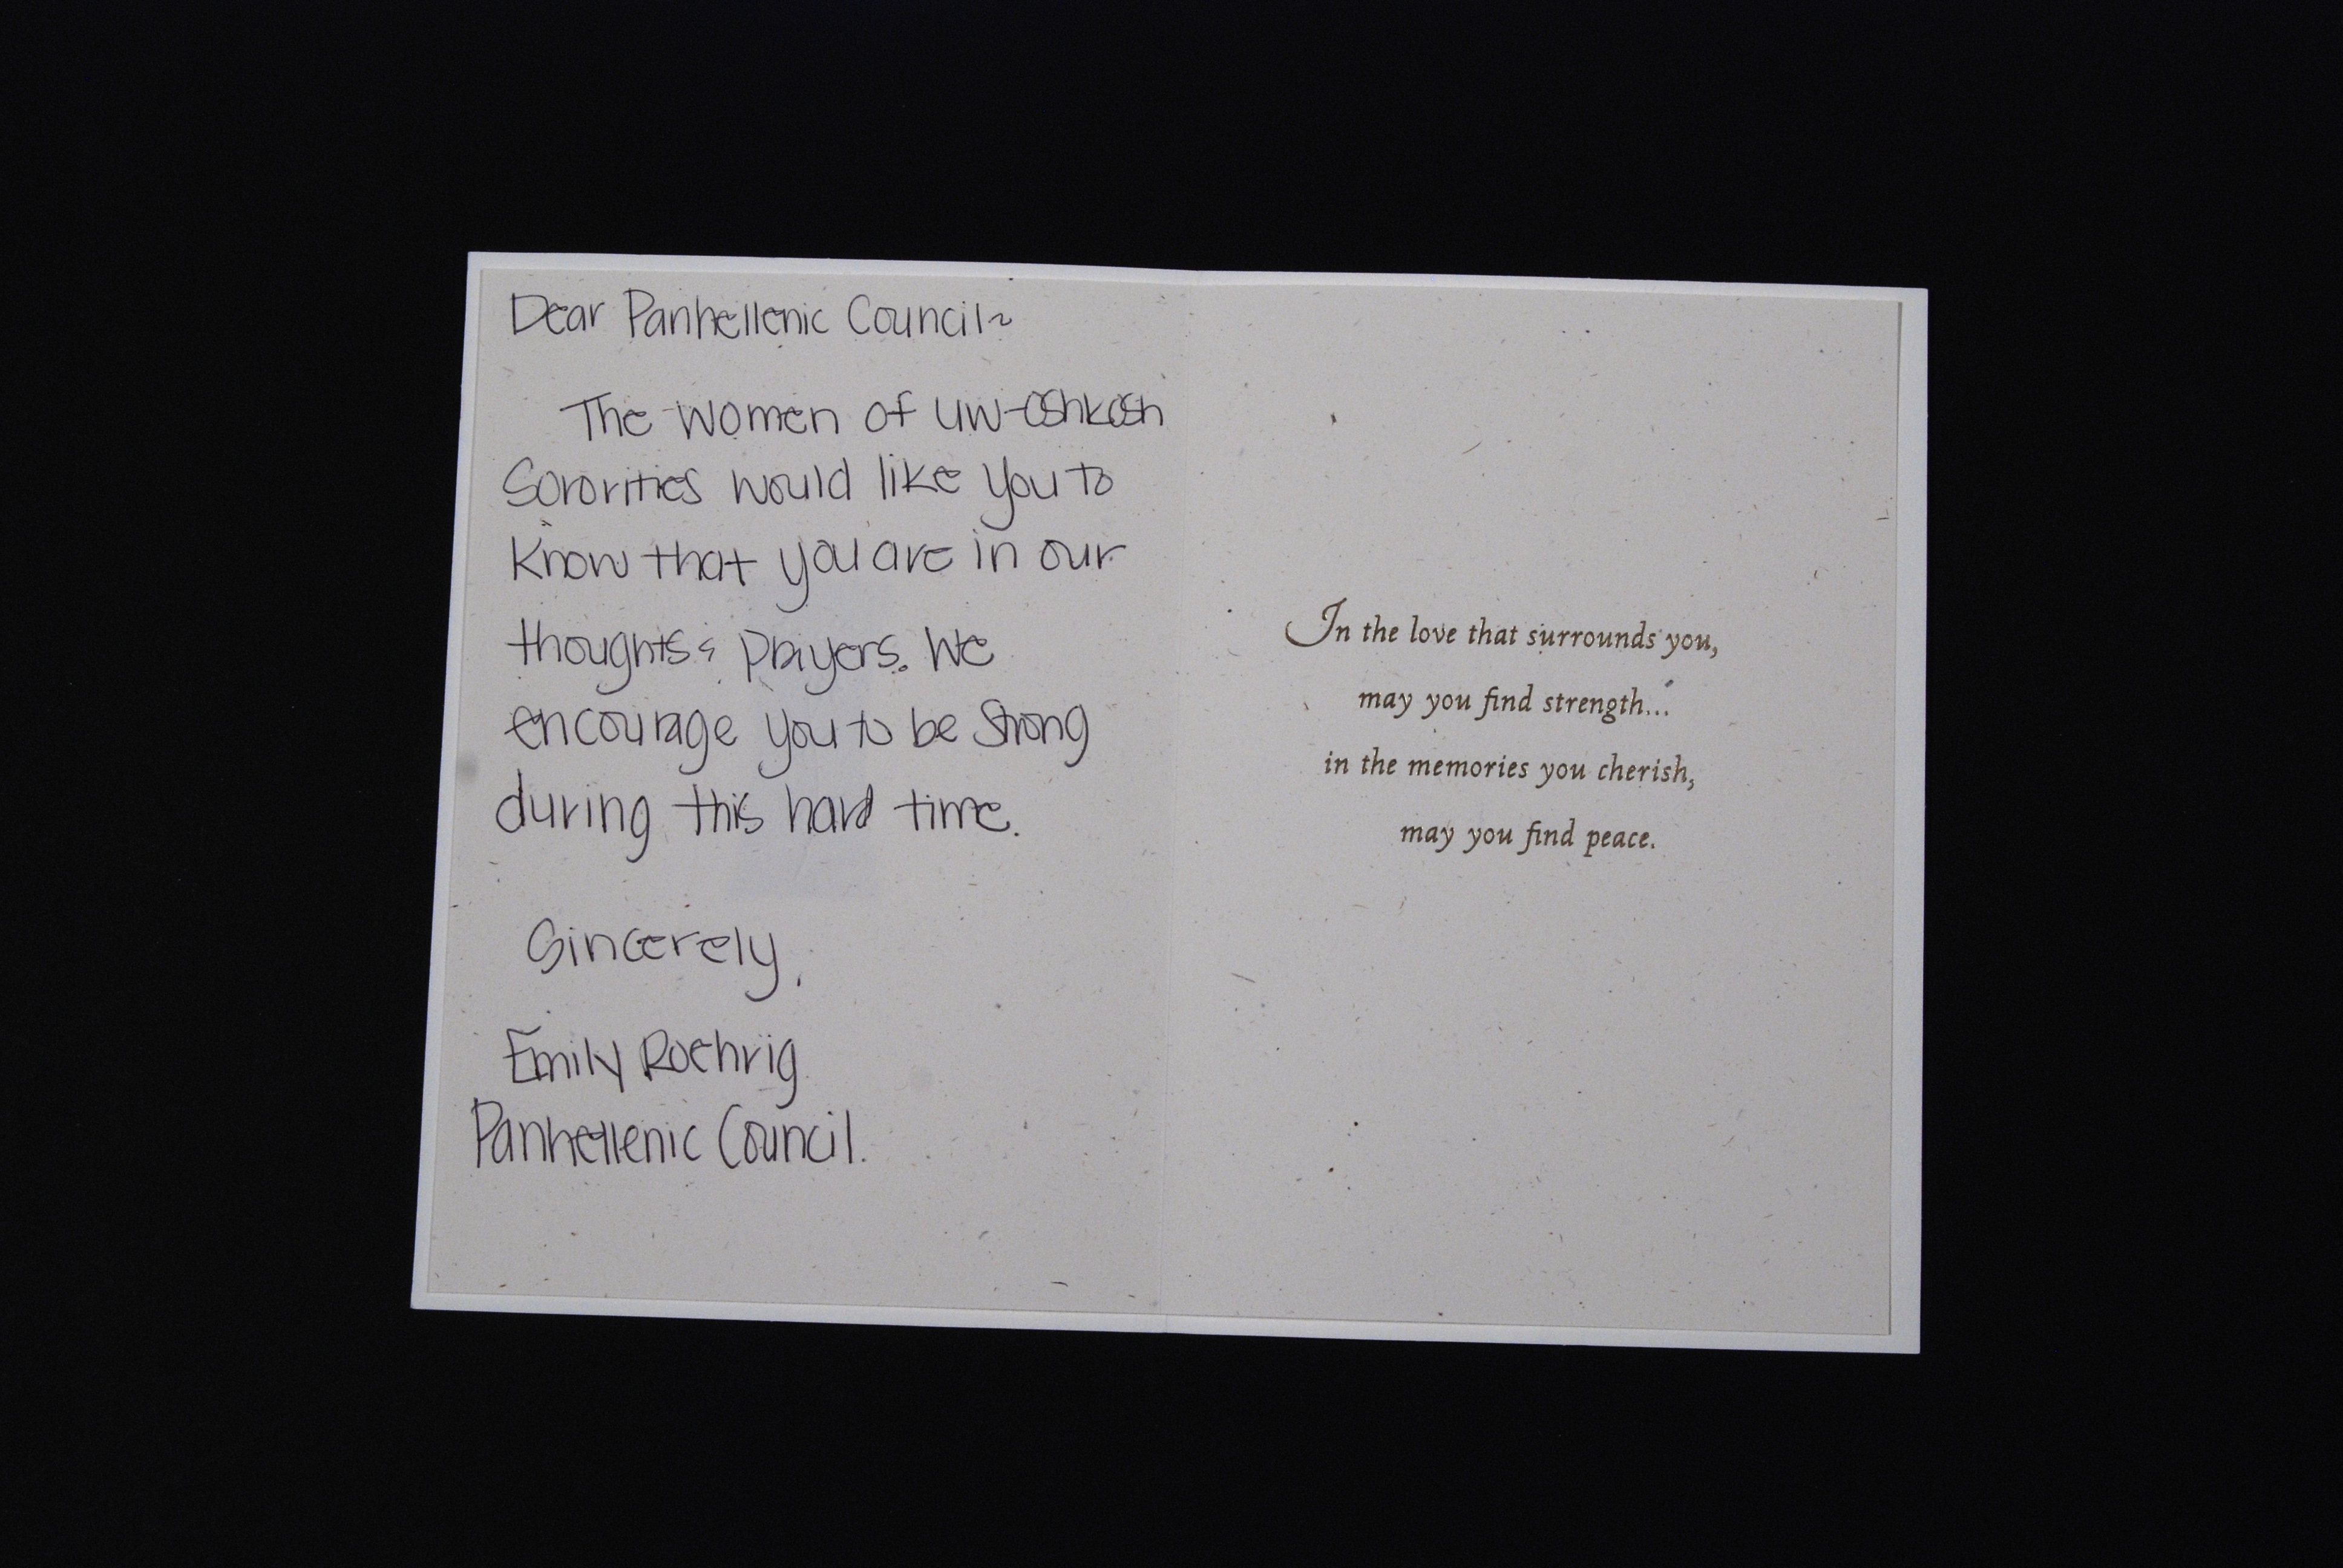 Dear Panhellenic Council~
The Women of UW-Oshkosh
Sororities would like you to
know that you are in our
thoughts & prayers. We
encourage you to be strong
during this hard time.
Sincerely,
Emily Roehrig
Panhellenic Council.
In the love that surrounds you,
may you find strength...
in the memories you cherish,
may you find peace.